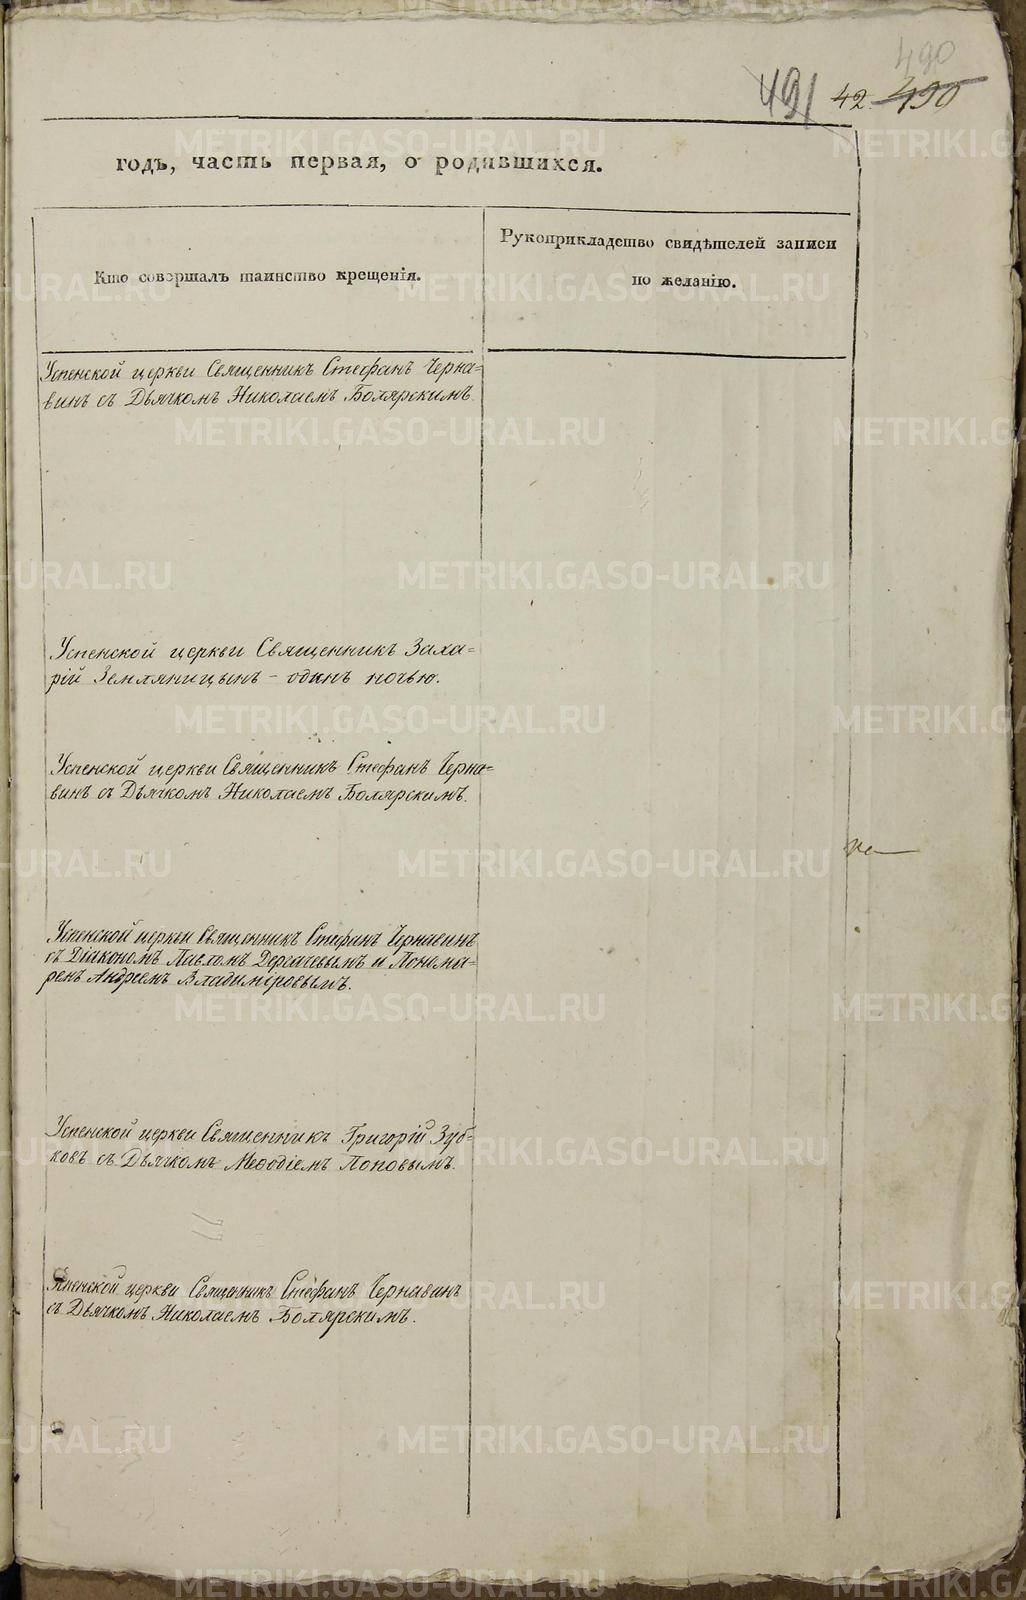 490
491 42. 490
годъ, часть первая, о родившихся.
Кто совершалъ таинство крещенія.
Рукоприкладство свидѣтелей записи
по желанію.
Успенской церкви Священникъ Стефанъ Черна=
винъ съ Дьячкомъ Николаемъ Болярскимъ.
Успенской церкви Священникъ Заха=
рій Земляницынъ - одинъ ночью.
Успенской церкви Священникъ Стефанъ Черна=
винъ съ Дьячкомъ Николаемъ Болярскимъ.
Успенской церкви Священникъ Стефанъ Чернавинъ
съ Діакономъ Павломъ Дергачевымъ и Понома=
ремъ Андреемъ Владиміровымъ.
Успенской церкви Священникъ Григорій Зуб=
ковъ съ Дьячкомъ Меѳодіемъ Поповымъ.
Успенской церкви Священникъ Стефанъ Чернавинъ
съ Дьячкомъ Николаемъ Болярскимъ.
METRIKI.GASO-URAL.RU